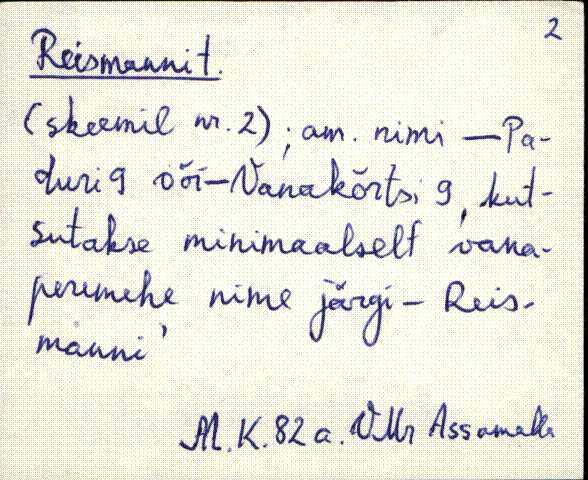 2
Reismannit.
(skeemil nr. 2); am. nimi — Pa-
duri 9 või — Vanakõrtsi 9, kut-
sutakse minimaalselt vana-
peremehe nime järgi — Reis-
manni
M.K. 82 a. VMr Assamalla